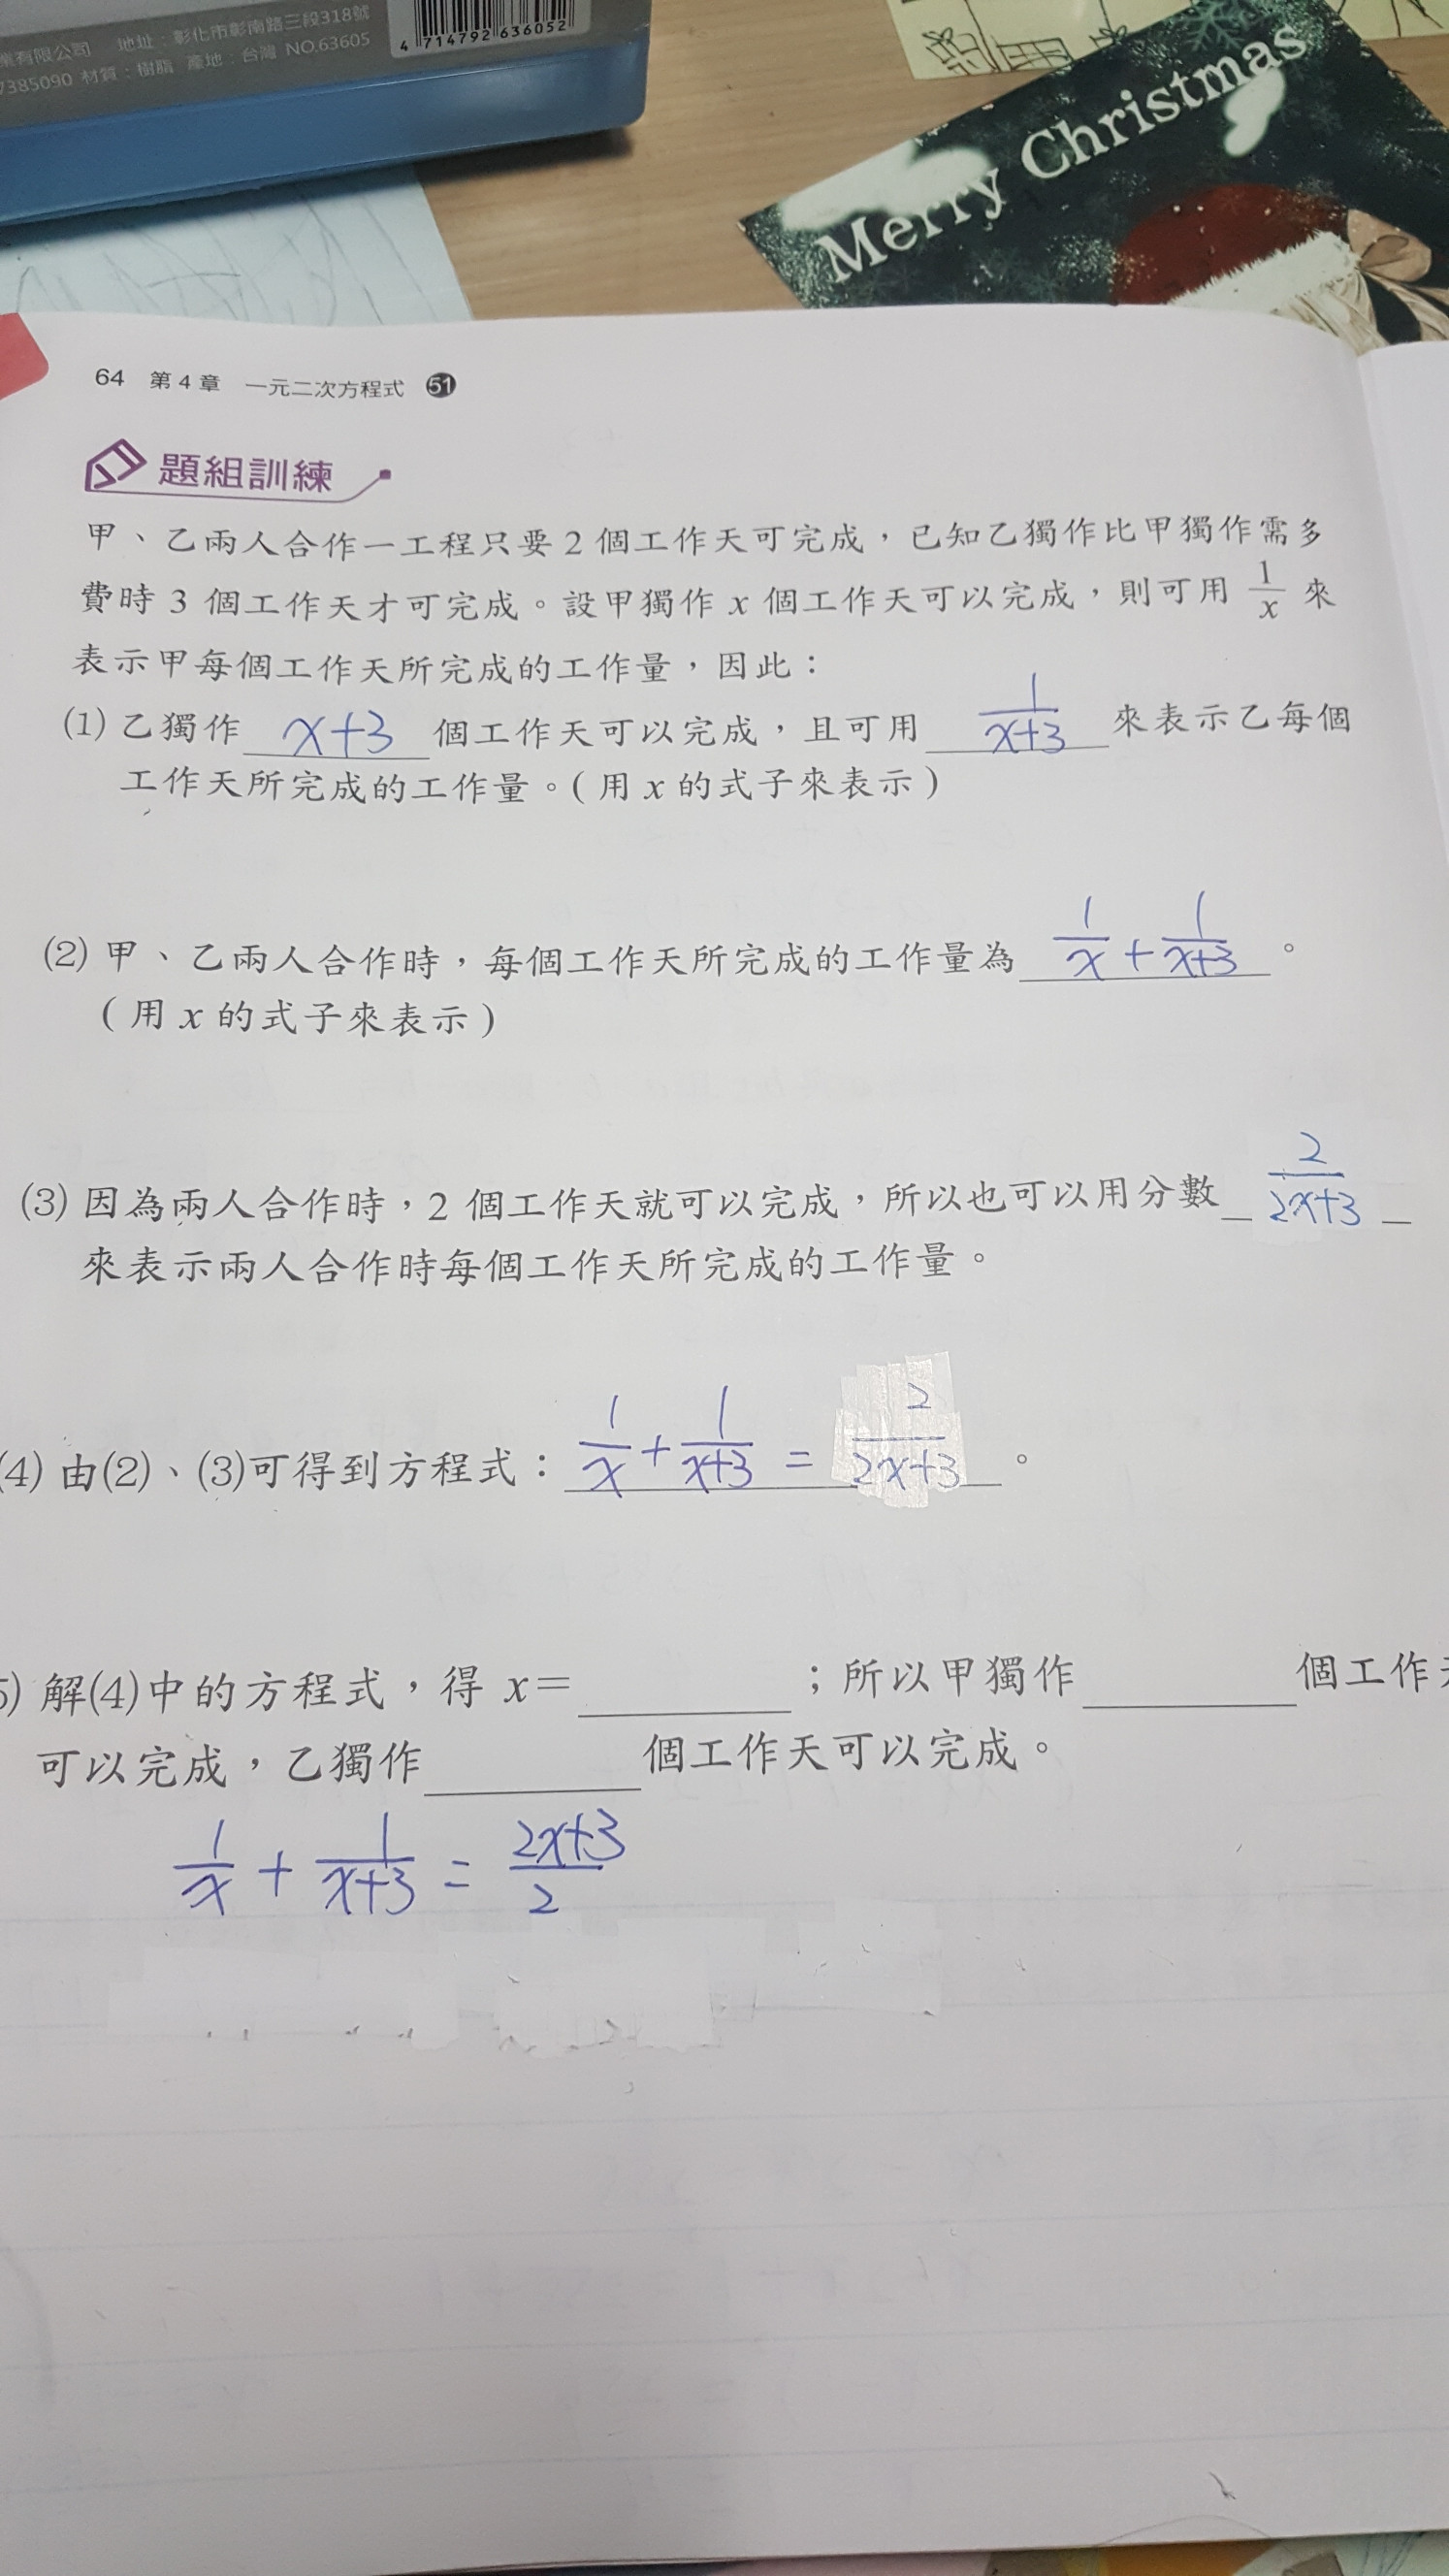 業有限公司 地址：彰化市彰南路三段318號
7385090 材質：樹脂 產地：台灣 NO.63605
4 714792 636052
Merry Christmas
64 第4章 一元二次方程式 51
題組訓練
甲、乙兩人合作一工程只要 2 個工作天可完成，已知乙獨作比甲獨作需多
費時 3 個工作天才可完成。設甲獨作 x 個工作天可以完成，則可用 1/x 來
表示甲每個工作天所完成的工作量，因此：
(1) 乙獨作 x+3 個工作天可以完成，且可用 1/(x+3) 來表示乙每個
工作天所完成的工作量。(用 x 的式子來表示)
(2) 甲、乙兩人合作時，每個工作天所完成的工作量為 1/x + 1/(x+3) 。
(用 x 的式子來表示)
(3) 因為兩人合作時，2 個工作天就可以完成，所以也可以用分數 2/(2x+3)
來表示兩人合作時每個工作天所完成的工作量。
(4) 由(2)、(3)可得到方程式：1/x + 1/(x+3) = 2/(2x+3) 。
5) 解(4)中的方程式，得 x＝______；所以甲獨作______個工作天
可以完成，乙獨作______個工作天可以完成。
1/x + 1/(x+3) = (2x+3)/2